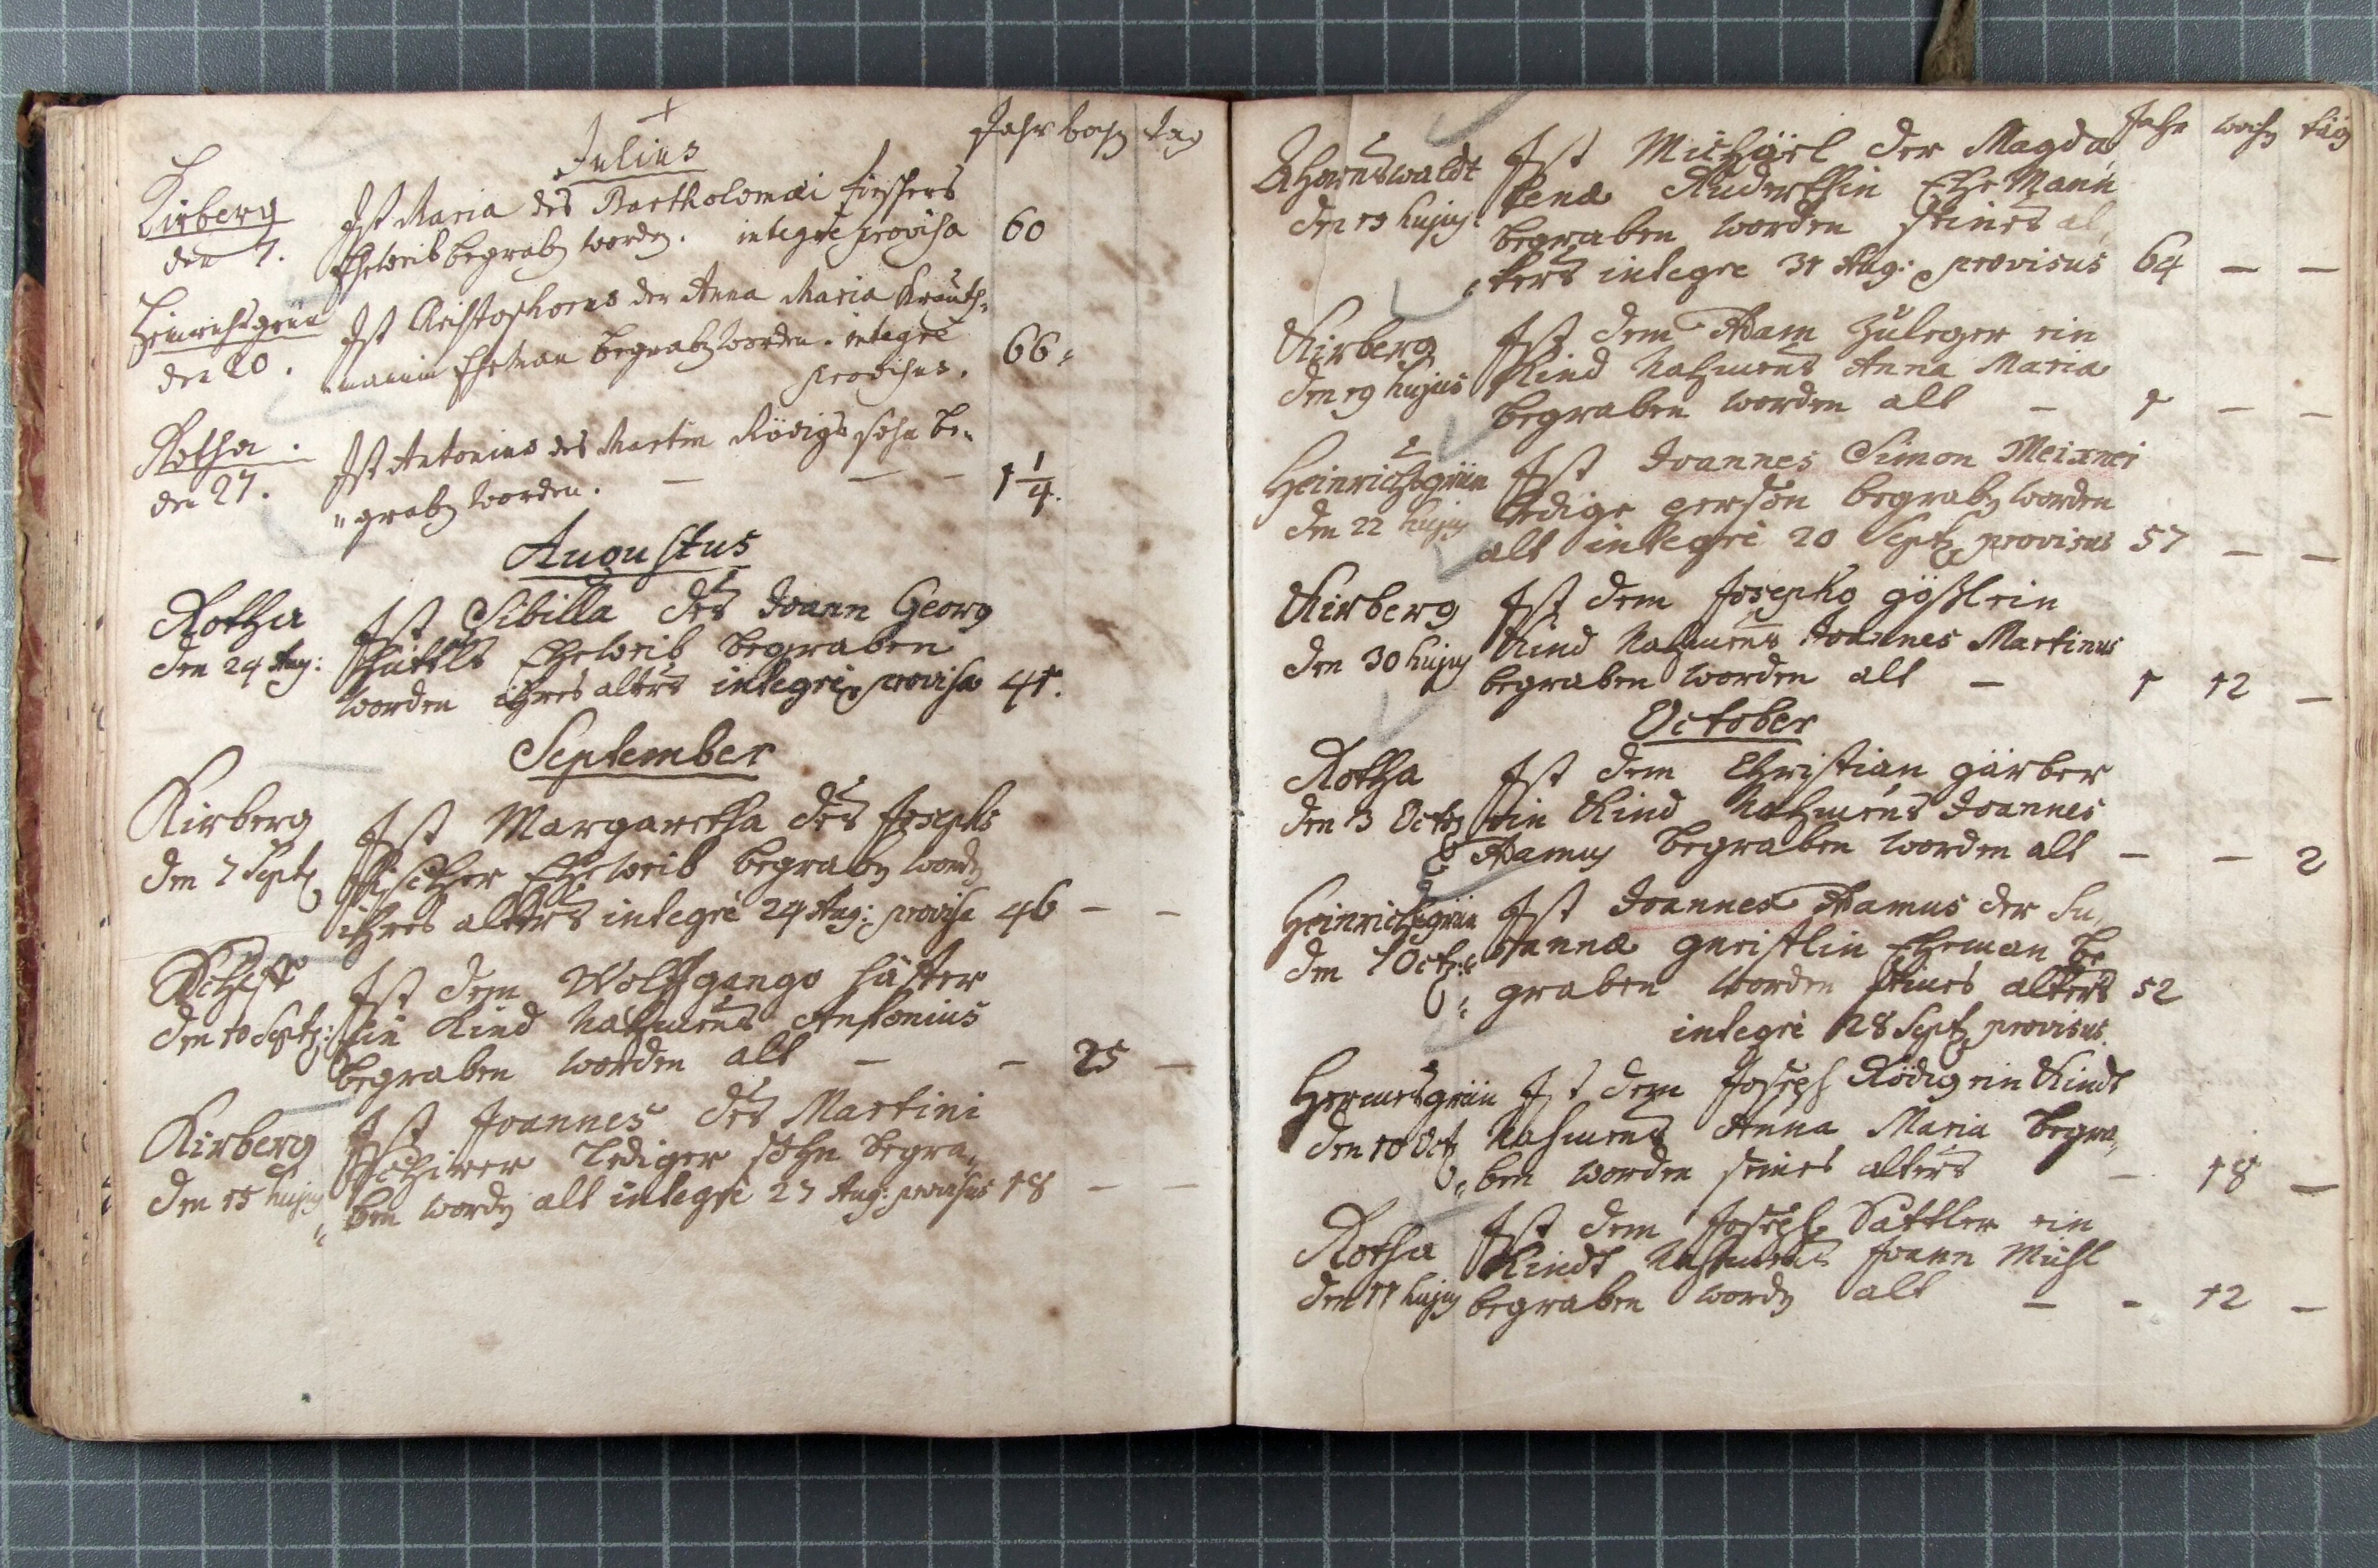 Julius
Jahr woch tag
Kirberg
den 7.
Ist Maria des Bartholomæi Fischers
Eheweib begrab worden. integre provisa 60
Heinrichsgrün
den 20.
Ist Christophorus der Anna Maria
Eheman begrab worden. integrè
provisus. 66
Rotha.
den 27.
Ist Antonius des Martin Rödigs sohn be„
„grab worden. — — — 1 1/4.
Augustus
Rotha
den 24 Aug:
Ist Sibilla des Joann Georg
Eheweib begraben
worden ihres alters integrè provisa 41.
September
Kirberg
den 7 Sept
Ist Margaretha des Josephs
Fischer Eheweib begrab word
ihres alters integrè 24 Aug: provisa 46 — —
den 10 Sept:
Ist dem Wolffgango
ein Kind Nahmens Antonius
begraben worden alt — — 25 —
Kirberg
den 15 hujus
Ist Joannes des Martini
lediger sohn begra„
„ben word alt integrè 27 Aug: provisus 18 — —
Jahr woch täg
Ahornswaldt
den 19 hujus
Ist Michäel der Magda
lenæ Ehe Mann
begraben worden seines al„
„ters integre 31 Aug: provisus 64 — —
Kirberg
den 19 hujus
Ist dem Adam Zuleger ein
Kind Nahmens Anna Maria
begraben worden alt — 1 — —
Heinrichsgrün
den 22 hujus
Ist Joannes Simon Meixner
ledige person begrab worden
alt integrè 20 Sept provisus 57 — —
Kirberg
den 30 hujus
Ist dem Josepho gößl ein
Kind Nahmens Joannes Martinus
begraben worden alt — 1 12 —
October
Rotha
den 3 Oct
Ist dem Christian gärber
ein Kind Nahmens Joannes
Adamus begraben worden alt — — 2
Heinrichsgrün
den 7 Oct:
Ist Joannes Adamus der Su„
sannæ Eheman be„
„graben worden seines alters 52
integrè 28 Sept provisus.
Hermesgrün
den 10 Oct
Ist dem Joseph Rödig ein Kindt
Nahmens Anna Maria begra„
„ben worden seines alters — 18 —
Rotha
den 11 hujus
Ist dem Joseph Sattler ein
Kindt Nahmens Joann Michl
begraben word alt — - 12 —